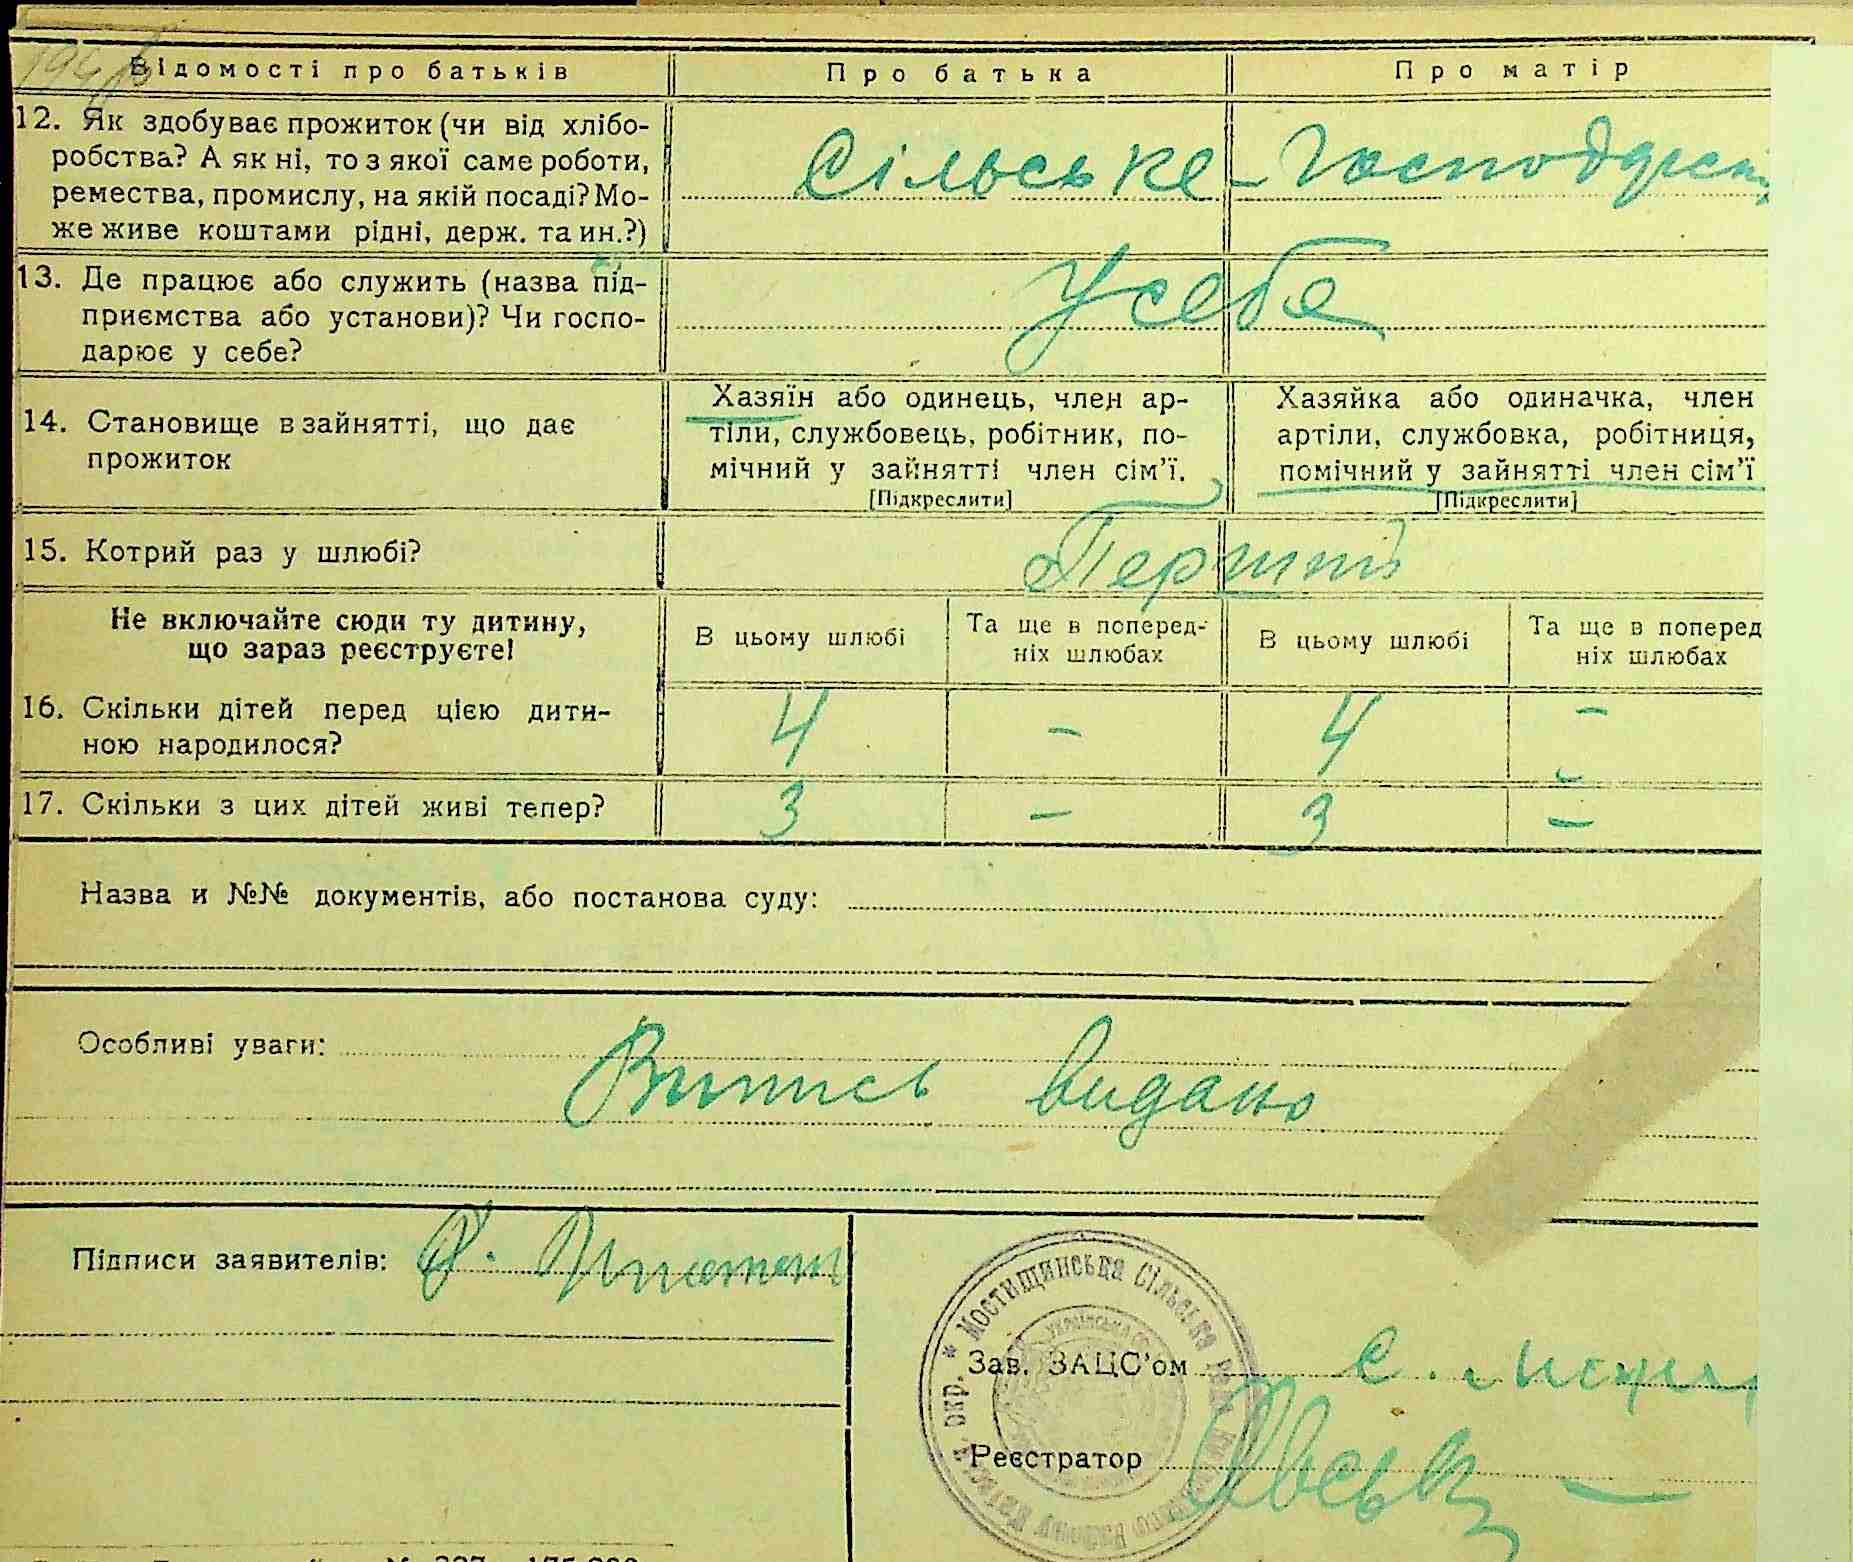 Відомості про батьків
Про батька
Про матір
12. Як здобуває прожиток (чи від хлібо-
робства? А як ні, то з якої саме роботи,
ремества, промислу, на якій посаді? Мо-
же живе коштами рідні, держ. та ин.?)
Сільське-господарськ
13. Де працює або служить (назва під-
приємства або установи)? Чи госпо-
дарює у себе?
У себе
14. Становище в зайнятті, що дає
прожиток
Хазяїн або одинець, член ар-
тіли, службовець, робітник, по-
мічний у зайнятті член сім'ї.
[Підкреслити]
Хазяйка або одиначка, член
артіли, службовка, робітниця,
помічний у зайнятті член сім'ї
[Підкреслити]
15. Котрий раз у шлюбі?
Перший
Не включайте сюди ту дитину,
що зараз реєструєте!
В цьому шлюбі
Та ще в поперед-
ніх шлюбах
В цьому шлюбі
Та ще в поперед
ніх шлюбах
16. Скільки дітей перед цією дити-
ною народилося?
4 – 4 –
17. Скільки з цих дітей живі тепер?
3 – 3 –
Назва и №№ документів, або постанова суду:
Особливі уваги:
Випись видано
Підписи заявителів:
Мостищинська Сільська Рада
Зав. ЗАЦС'ом
Реєстратор